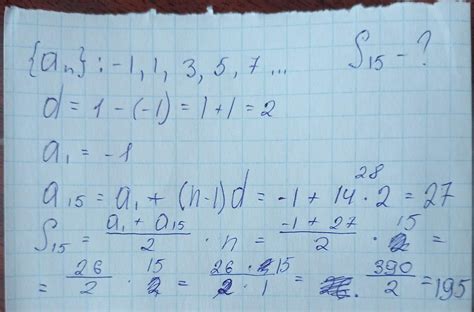 {aₙ} : -1, 1, 3, 5, 7 ... S₁₅ - ?
d = 1 - (-1) = 1 + 1 = 2
a₁ = -1
a₁₅ = a₁ + (n-1)d = -1 + 14 · 2 = 27
28
S₁₅ = (a₁ + a₁₅)/2 · n = (-1 + 27)/2 · 15 =
= 26/2 · 15 = (26 · 15)/(2 · 1) = 390/2 = 195